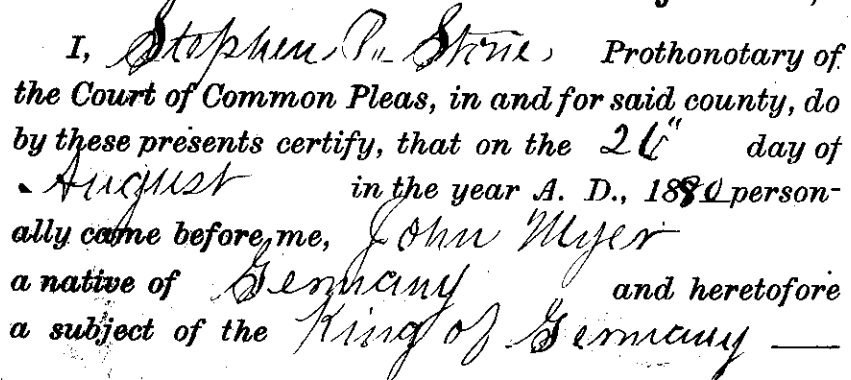 I, Stephen P. Stone, Prothonotary of
the Court of Common Pleas, in and for said county, do
by these presents certify, that on the day of
August in the year A. D., 1880 person-
ally came before me, John Myer
a native of Germany and heretofore
a subject of the King of Germany